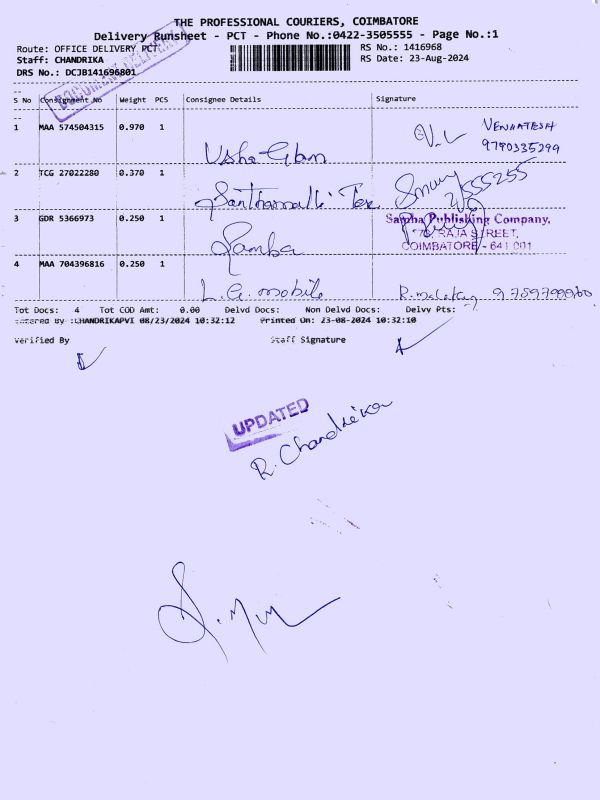 THE PROFESSIONAL COURIERS, COIMBATORE
Delivery Runsheet - PCT - Phone No.:0422-3505555 - Page No.:1
Route: OFFICE DELIVERY PCT
RS No.: 1416968
Staff: CHANDRIKA
RS Date: 23-Aug-2024
DRS No.: DCJB141696801
S No Consignment No Weight PCS Consignee Details Signature
1 MAA 574504315 0.970 1 VENKATESH
9790335299
2 TCG 27022280 0.370 1
3 GDR 5366973 0.250 1 Samba
Samba Publishing Company,
RAJA STREET,
COIMBATORE - 641 001
4 MAA 704396816 0.250 1 L.G. mobile
Tot Docs: 4 Tot COD Amt: 0.00 Delvd Docs: Non Delvd Docs: Delvy Pts:
Entered By :CHANDRIKAPVI 08/23/2024 10:32:12 Printed On: 23-08-2024 10:32:10
Verified By Staff Signature
UPDATED
R. Chandrika